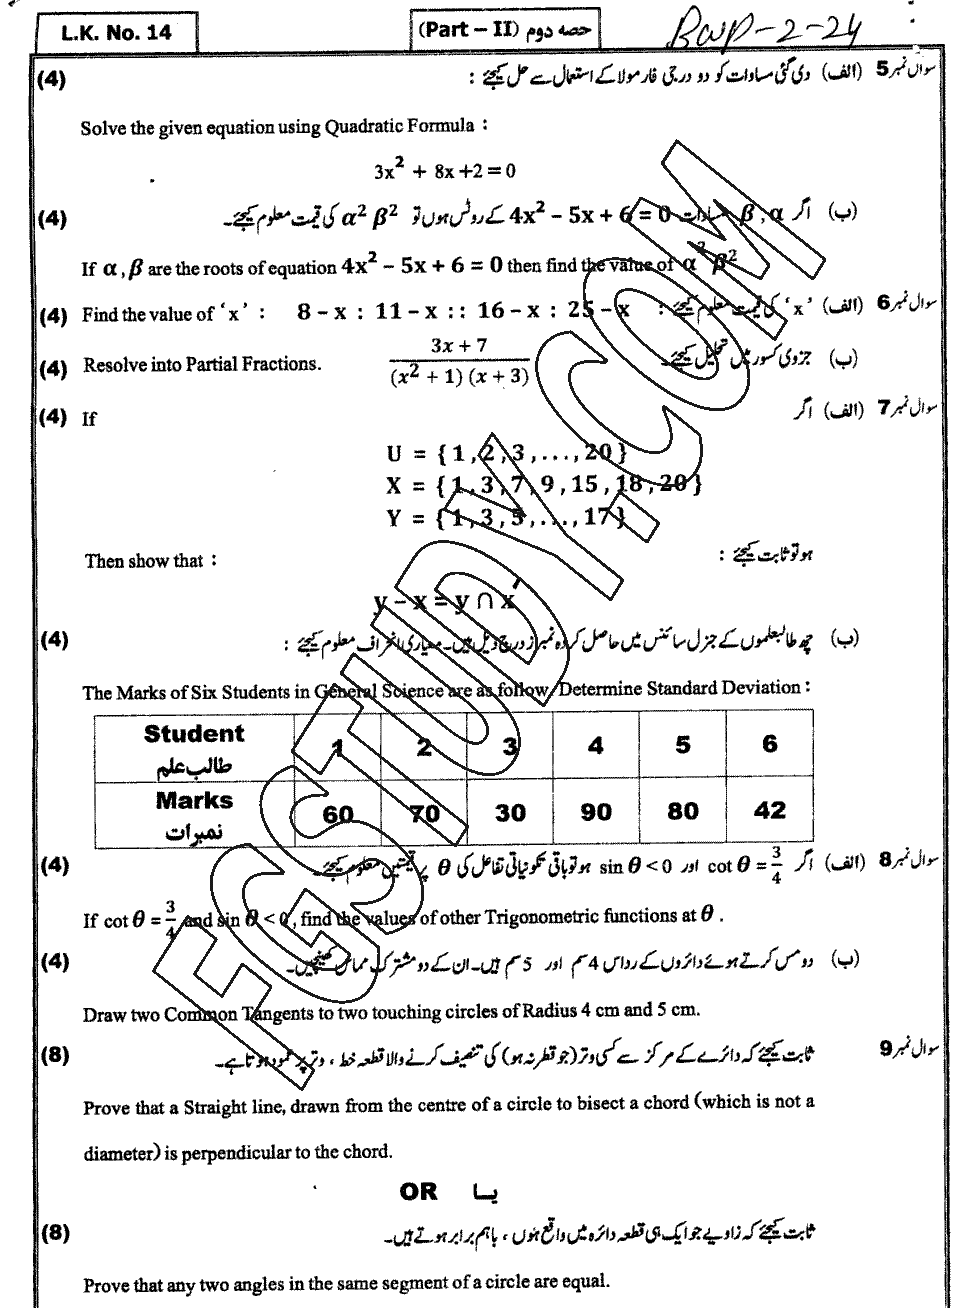 L.K. No. 14
(Part – II) حصہ دوم
Rwp-2-24
سوال نمبر 5 (الف) دی گئی مساوات کو دو درجی فارمولا کے استعمال سے حل کیجئے : (4)
Solve the given equation using Quadratic Formula :
3x² + 8x +2 = 0
(ب) اگر β , α مساوات 4x² – 5x + 6 = 0 کے روٹس ہوں تو α² β² کی قیمت معلوم کیجئے۔ (4)
If α , β are the roots of equation 4x² – 5x + 6 = 0 then find the value of α² β²
سوال نمبر 6 (الف) ‘x’ کی قیمت معلوم کیجئے : 8 – x : 11 – x :: 16 – x : 25 – x Find the value of ‘x’ : (4)
(ب) جزوی کسور میں تحلیل کیجئے۔ (3x + 7)/((x² + 1) (x + 3)) Resolve into Partial Fractions. (4)
سوال نمبر 7 (الف) اگر If (4)
U = { 1 , 2 , 3 , . . . , 20 }
X = { 1 , 3 , 7 , 9 , 15 , 18 , 20 }
Y = { 1 , 3 , 5 , . . . , 17 }
Then show that : ہو تو ثابت کیجئے :
y – x = y ∩ x′
(ب) چھ طالبعلموں کے جنرل سائنس میں حاصل کردہ نمبرز درج ذیل ہیں۔ معیاری انحراف معلوم کیجئے : (4)
The Marks of Six Students in General Science are as follow, Determine Standard Deviation :
Student طالب علم 1 2 3 4 5 6
Marks نمبرات 60 70 30 90 80 42
سوال نمبر 8 (الف) اگر cot θ = 3/4 اور sin θ < 0 ہو تو باقی تکونیاتی تفاعل کی θ پر قیمتیں معلوم کیجئے۔ (4)
If cot θ = 3/4 and sin θ < 0 , find the values of other Trigonometric functions at θ .
(ب) دو مس کرتے ہوئے دائروں کے رداس 4 سم اور 5 سم ہیں۔ ان کے دو مشترک مماس کھینچیں۔ (4)
Draw two Common Tangents to two touching circles of Radius 4 cm and 5 cm.
سوال نمبر 9 ثابت کیجئے کہ دائرے کے مرکز سے کسی وتر (جو قطر نہ ہو) کی تنصیف کرنے والا قطعہ خط ، وتر پر عمود ہوتا ہے۔ (8)
Prove that a Straight line, drawn from the centre of a circle to bisect a chord (which is not a
diameter) is perpendicular to the chord.
OR یا
ثابت کیجئے کہ زاویے جو ایک ہی قطعہ دائرہ میں واقع ہوں ، باہم برابر ہوتے ہیں۔ (8)
Prove that any two angles in the same segment of a circle are equal.
FGSTUDY.COM